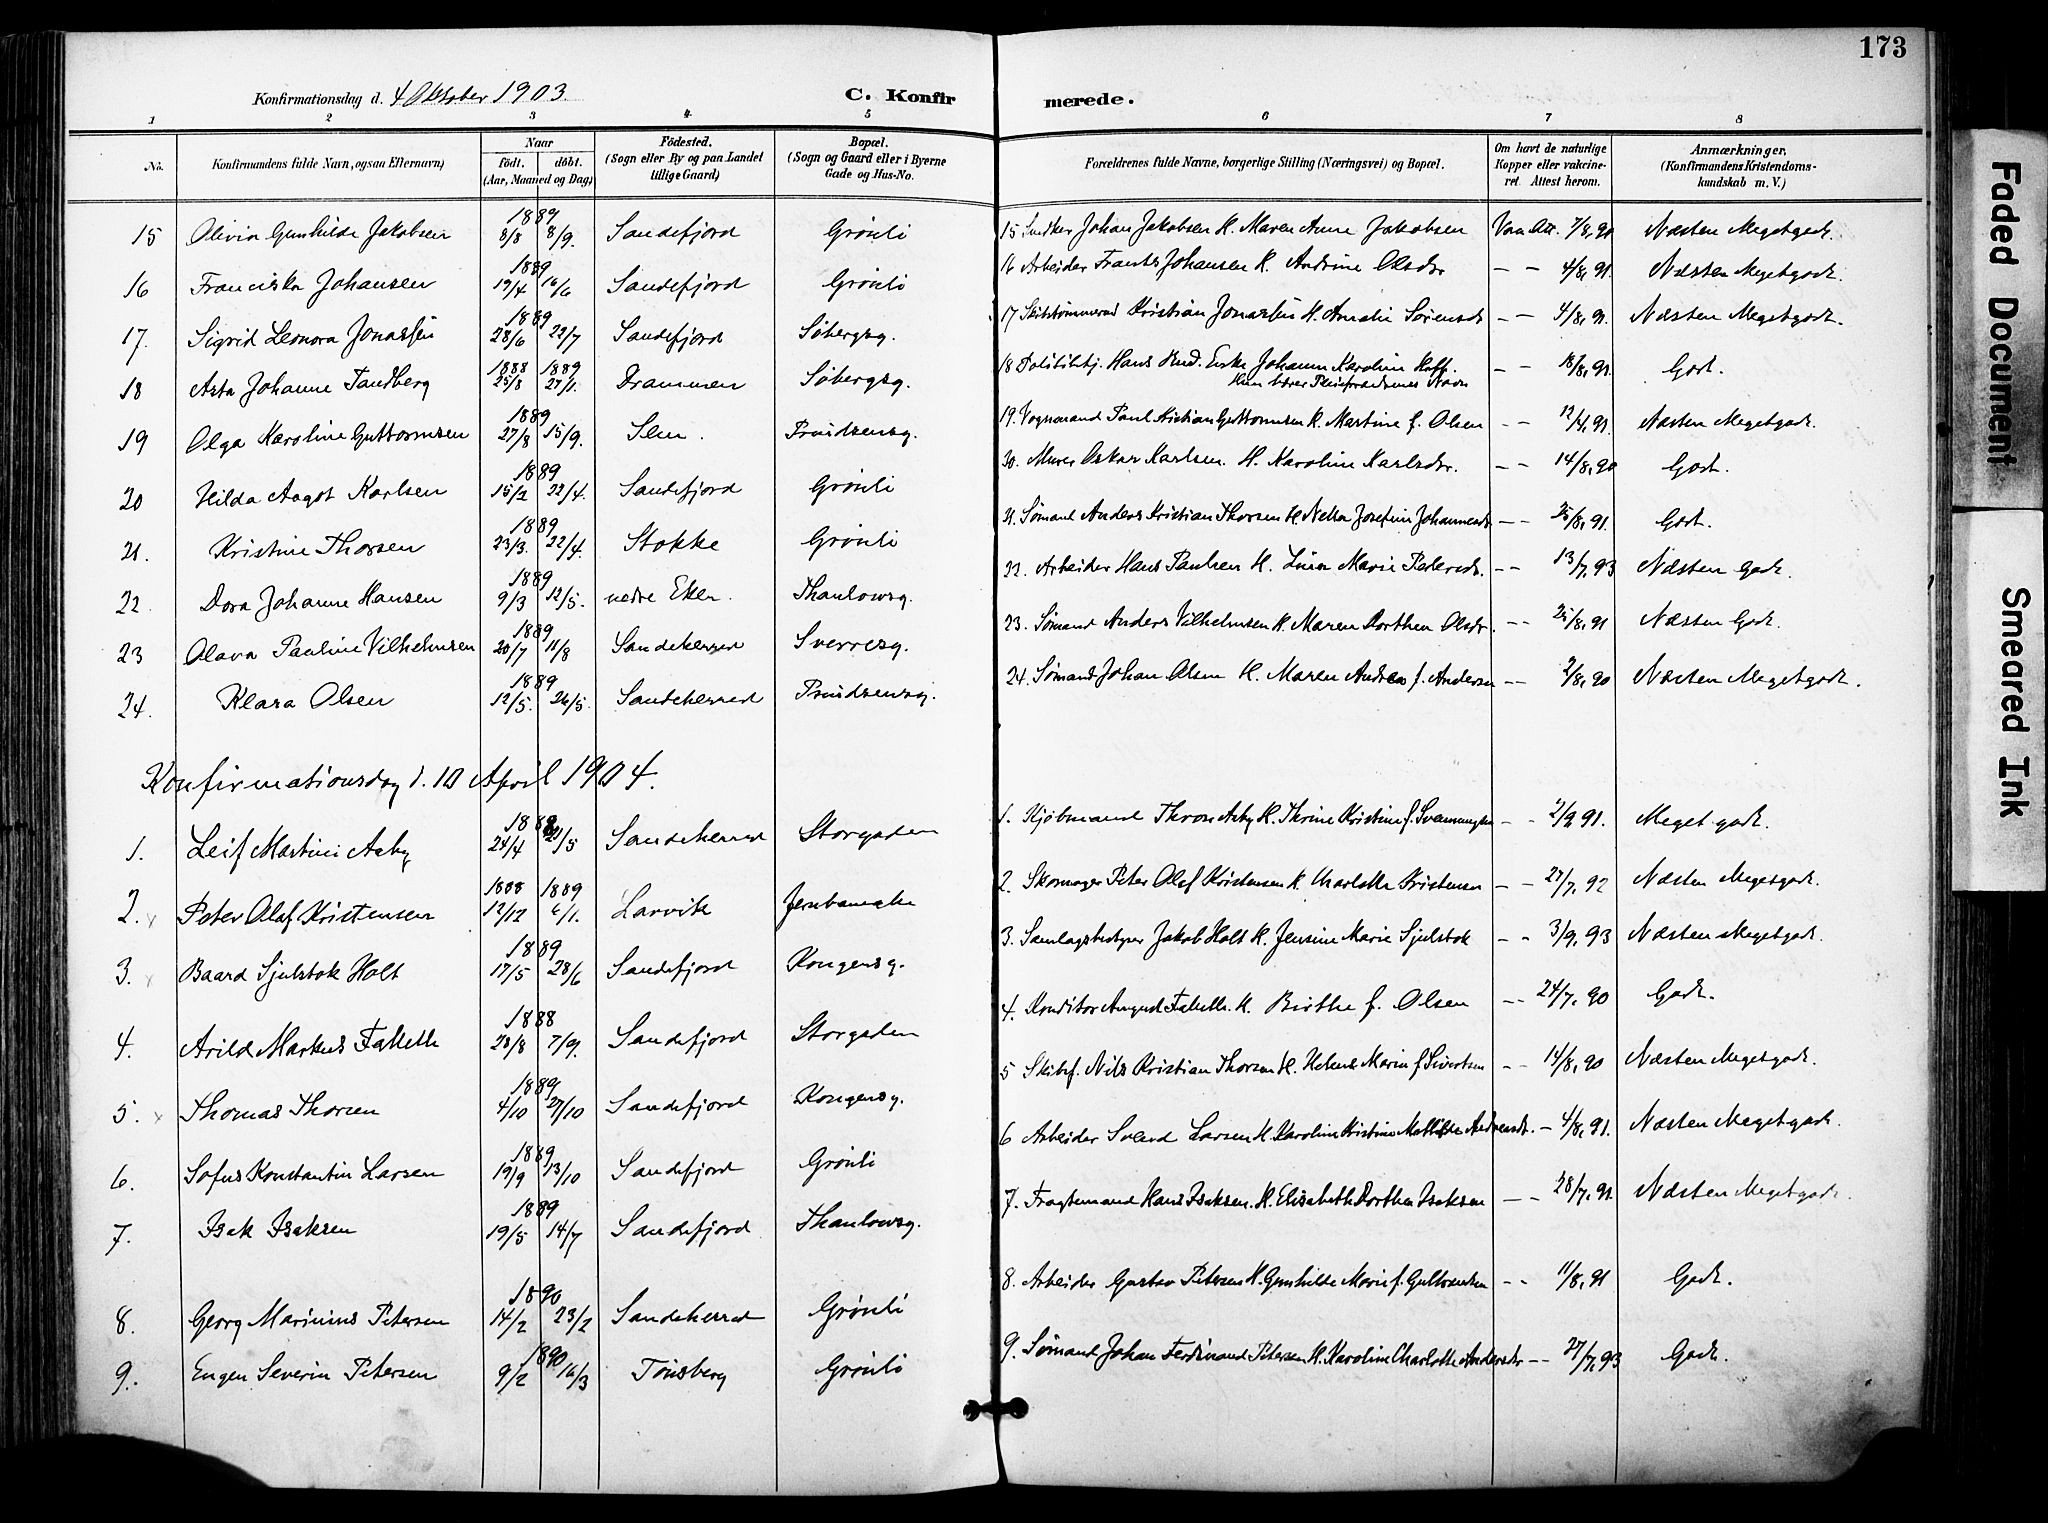 173
Konfirmationsdag d. 4 Oktober 1903. C. Konfirmerede.
1 2 3 4 5 6 7 8
No. Konfirmandens fulde Navn, ogsaa Efternavn) Naar födt. döbt. (Aar, Maaned og Dag) Födested. (Sogn eller By og paa Landet tillige Gaard) Bopæl. (Sogn og Gaard eller i Byerne Gade og Hus-No. Forældrenes fulde Navne, borgerlige Stilling (Næringsvei) og Bopæl. Om havt de naturlige Kopper eller vakcineret. Attest herom. Anmærkninger, (Konfirmandens Kristendomskundskab m. V.)
15 Olivia Gunhilde Jakobsen 1889 8/8 8/9. Sandefjord Grønli 15 Johan Jakobsen H. Maren Anne Jakobsen Vac. Att. 7/8, 90 Næsten Megetgodt.
16 Franciska Johansen 1889 19/4 16/6 Sandefjord Grønli 16 Arbeider Frants Johansen H. Andrine Olsdr — — 4/8, 91. Næsten Megetgodt.
17. Sigrid Leonora Jonassen 1889 28/6 22/7 Sandefjord Søbergsg. 17 Skibstømmerm Kristian Jonassen H. Amalie Sørensdr — — 4/8, 91. Næsten Megetgodt.
18 Asta Johanne Tandberg 1888 25/8 1889 27/1. Drammen Søbergsg. 18 Politibtj. Hans Enke Johanne Karoline Hoff. Hun bærer Pleiforældrenes Navn — — 18/8, 91. Godt.
19 Olga Karoline Guttormsen 1889 27/8 15/9. Slen. Prindsensg. 19. Vognmand Paul Kristian Guttormsen H. Martine f. Olsen — — 12/4, 91. Næsten Megetgodt.
20 Hilda Aagot Karlsen 1889 15/2 22/4. Sandefjord Grønli 20. Murer Oskar Karlsen. H. Karoline Karlsdr. — — 14/8, 90 Godt.
21. Kristine Thorsen 1889 23/3. 22/4. Stokke Grønli 21. Sømand Anders Kristian Thorsen H. Josefine Johannesdr — — 25/8, 91. Godt.
22. Dora Johanne Hansen 1889 9/3 12/5. nedre Eker. Thaulowsg. 22. Arbeider Hans Paulsen H. Lina Marie Pedersdr. — — 13/7, 93 Næsten Godt.
23 Olava Pauline Vilhelmsen 1889 20/7 11/8 Sandeherred Sverresg. 23. Sømand Anders Vilhelmsen H. Maren Dorthea Olsdr. — — 25/8, 91 Næsten Godt.
24. Klara Olsen 1889 12/5. 26/5. Sandeherred Prindsensg. 24. Sømand Johan Olsen H. Maren Andrea f. Andersen — — 2/8, 90 Næsten Megetgodt.
Konfirmationsdag d. 10 April 1904.
1. Leif Martini Aaby 24/4 /5 Sandeherred Storgaden 1. Kjøbmand Thron Aaby H. Thrine Kristine f. Svenningsen — — 2/9 91. Meget godt.
2. Peter Olaf Kristensen 1888 12/12 1889 6/1. Larvik Jernbanealle 2. Skomager Peter Olaf Kristensen H. Charlotte Kristensen — — 27/7, 92 Næsten Megetgodt.
3. Baard Sjulstok Holt 1889 17/5 28/6 Sandefjord Kongensg. 3. Samlagsbestyrer Jakob Holt H. Jensine Marie Sjulstok — — 3/9, 93 Næsten Megetgodt.
4. Arild Markus Falleth 1888 28/8 7/9. Sandefjord Storgaden 4. Konditor August Falleth. H. Birthe f. Olsen — — 24/7, 90 Godt.
5. Thomas Thorsen 1889 4/10 27/10 Sandefjord Kongensg. 5 Skibsf. Nils Kristian Thorsen H. Helene Marie f. Sivertsen — — 14/8, 90 Næsten Megetgodt.
6. Sofus Konstantin Larsen 1889 19/9 13/10 Sandefjord Grønli 6 Arbeider Svend Larsen H. Karoline Kristine Mathilde Andreasdr. — 4/8, 91. Næsten Megetgodt.
7. Isak Isaksen 1889 19/5 14/7 Sandefjord Thaulowsg. 7. Fragtemand Hans Isaksen. H. Elisabeth Dorthea Isaksen — — 28/7, 91. Næsten Megetgodt.
8. Georg Marinius Petersen 1890 14/2 23/2 Sandeherred Grønli 8. Arbeider Gustav Petersen H. Gunhilde Marie f. Guttormsen — — 11/8, 91 Godt.
9. Eugen Severin Petersen 1890 9/2 16/3 Tønsberg Grønli 9. Sømand Johan Ferdinand Petersen H. Karoline Charlotte Andersdr — — 27/7, 93 Godt.
Faded Document
Smeared Ink